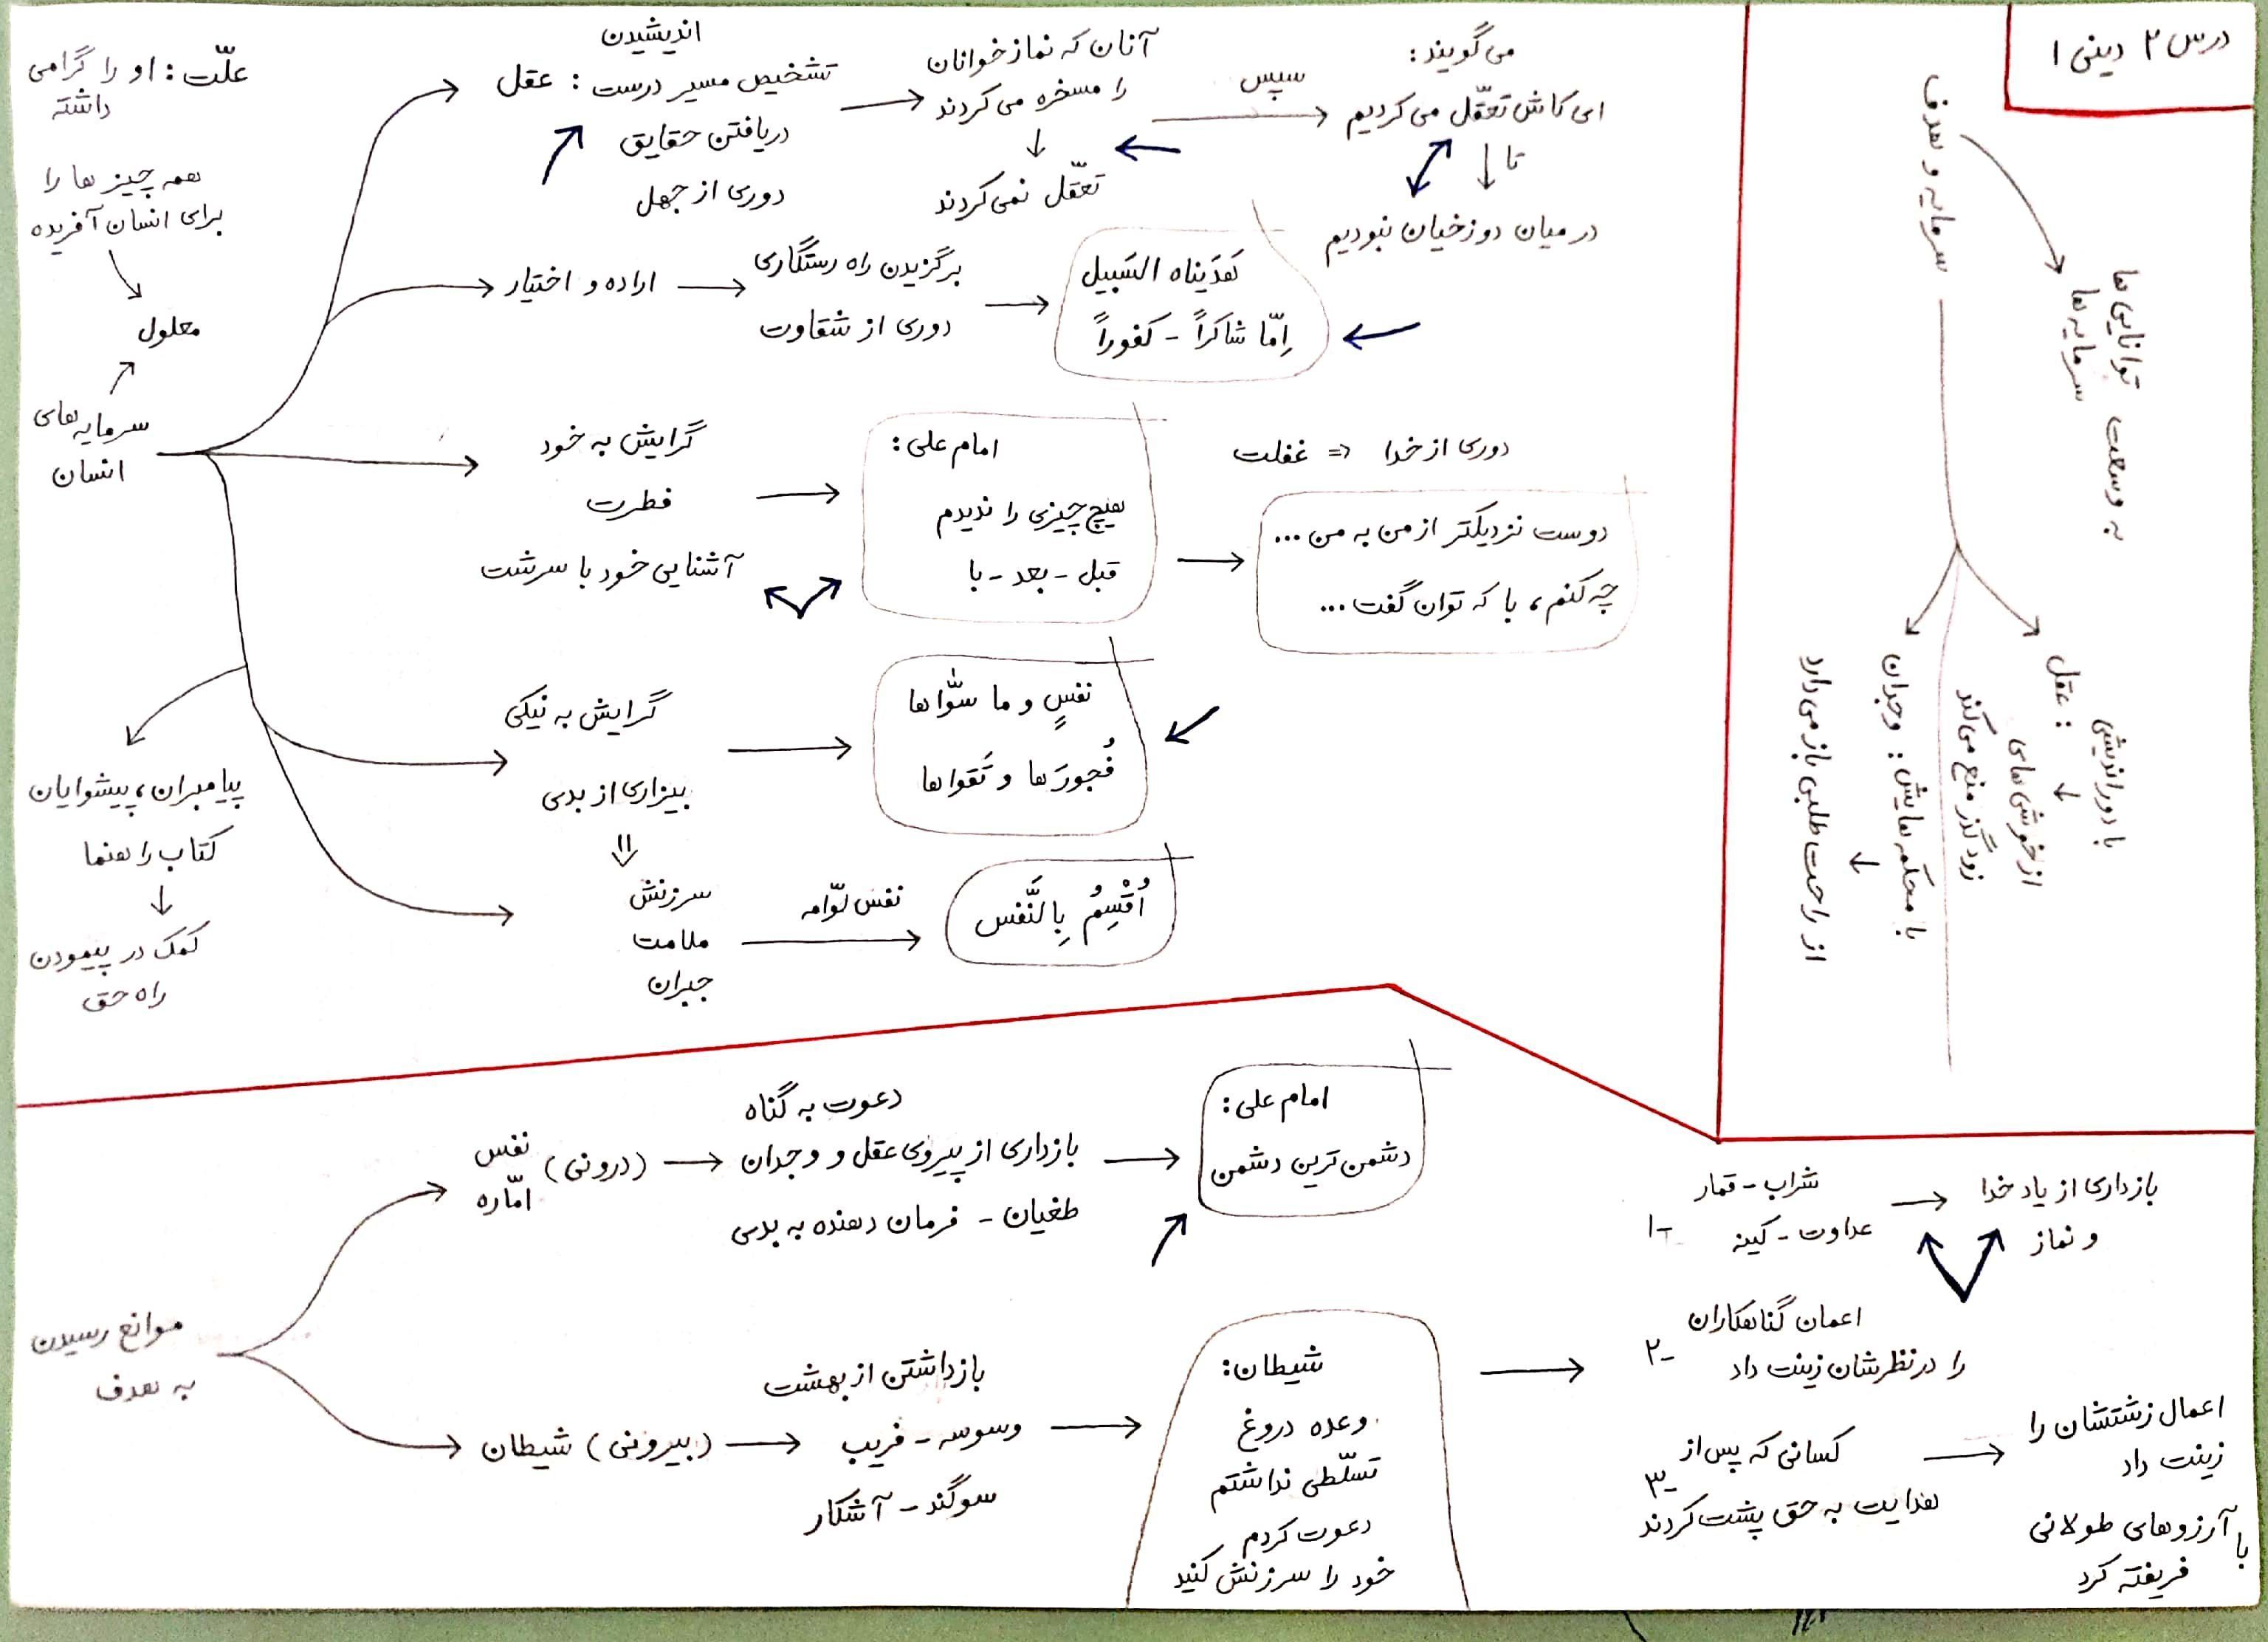 درس ۲ دینی ۱
سرمایه و هدف
به وسعت توانایی ها
سرمایه ها
عقل :
با دوراندیشی
از خوشی های
زودگذر منع می کند
وجدان :
با محکمه هایش
از راحت طلبی باز می دارد
علّت : او را گرامی
داشته
همه چیز ها را
برای انسان آفریده
معلول
سرمایه های
انسان
پیامبران، پیشوایان
کتاب راهنما
کمک در پیمودن
راه حق
عقل :
اندیشیدن
تشخیص مسیر درست
دریافتن حقایق
دوری از جهل
آنان که نماز خوانان
را مسخره می کردند
تعّقل نمی کردند
سپس
می گویند :
ای کاش تعّقل می کردیم
تا
در میان دوزخیان نبودیم
اراده و اختیار
برگزیدن راه رستگاری
دوری از شقاوت
هَدَیناه السَبیل
اِمّا شاکراً - کفوراً
گرایش به خود
فطرت
آشنایی خود با سرشت
امام علی :
هیچ چیزی را ندیدم
قبل - بعد - با
دوری از خدا => غفلت
دوست نزدیکتر از من به من ...
چه کنم، با که توان گفت ...
گرایش به نیکی
بیزاری از بدی
نفسٍ و ما سوّاها
فُجورَها و تَقواها
سرزنش
ملامت
جبران
نفس لوّامه
اُقْسِمُ بِالنَّفس
موانع رسیدن
به هدف
نفس
امّاره
(درونی)
دعوت به گناه
بازداری از پیروی عقل و وجدان
طغیان - فرمان دهنده به بدی
امام علی :
دشمن ترین دشمن
شیطان (بیرونی)
بازداشتن از بهشت
وسوسه - فریب
سوگند - آشکار
شیطان :
وعده دروغ
تسلّطی نداشتم
دعوت کردم
خود را سرزنش کنید
۱- شراب - قمار
عداوت - کینه
بازداری از یاد خدا
و نماز
۲- اعمان گناهکاران
را در نظرشان زینت داد
۳- کسانی که پس از
هدایت به حق پشت کردند
اعمال زشتشان را
زینت داد
با آرزوهای طولانی
فریفته کرد